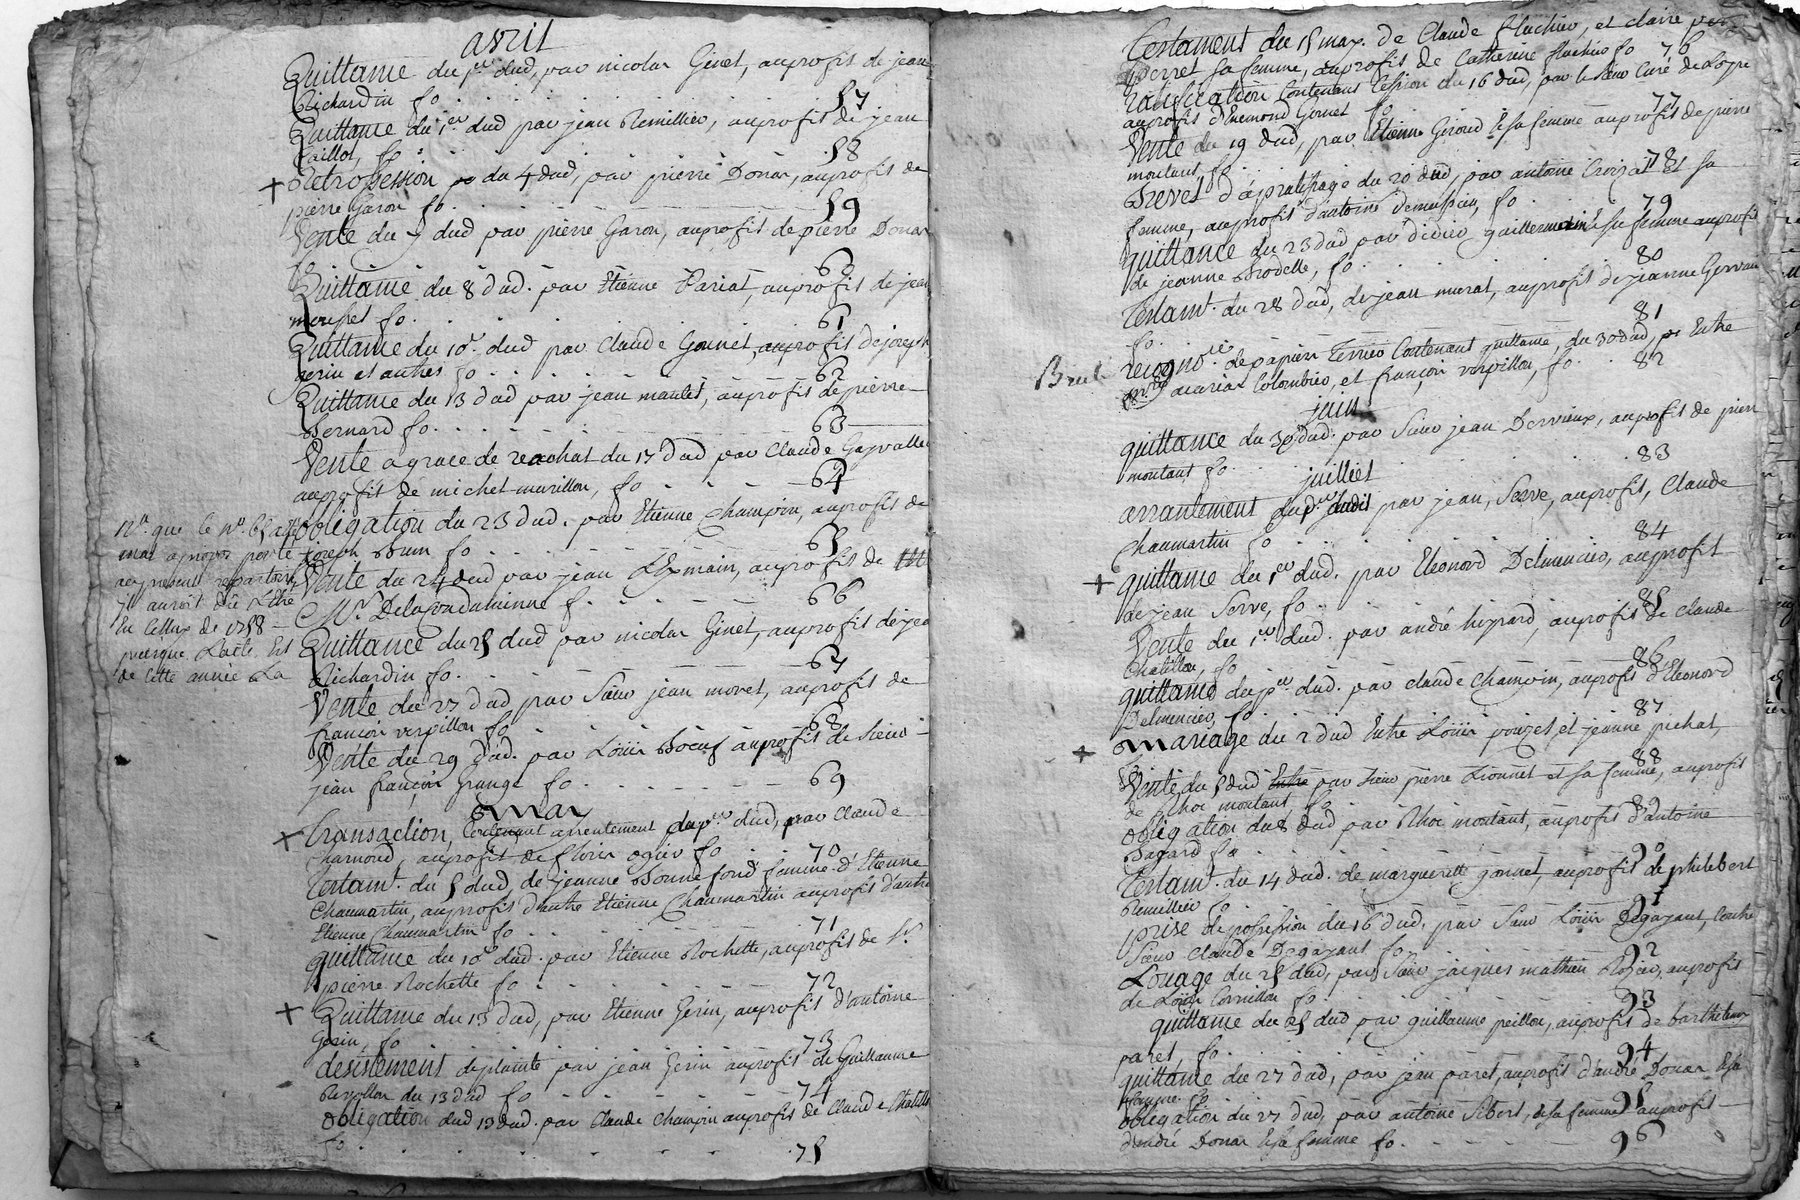 avril
Quittance du 1er dud, par nicolas Ginet, au profit de jean
Richardin fo. 57
Quittance du 1er dud par jean Remillier, au profit de jean
Caillot, fo 58
+ Retrosession du 4 dud, par pierre Donar, au profit de
pierre Garon fo 59
Vente du dud par pierre Garon, au profit de pierre Donar
60
Quittance du 8 dud. par Etienne Pariat, au profit de jean
fo. 61
Quittance du 10e dud par Claude Gonnet, au profit de joseph
gerin et autres fo 62
Quittance du 13 dud par jean au profit de pierre
Bernard fo. 63
Vente a grace de reachat du 17 dud par Claude Gayvallet
au profit de michel murillon, fo 64
obligation du 23 dud. par Etienne Champin, au profit de
joseph Brun fo 65
Vente du 24 dud par jean au profit de
Mr. fo. 66
Quittance du 25 dud par nicolas Ginet, au profit de jean
Richardin fo. 67
Vente du 27 dud par Sieur jean moret, au profit de
françois verpillon fo 68
Vente du 29 dud. par Loüis Boeuf au profit de Sieur
jean françois Grange fo 69
nta. que le no. 65
au present repertoire
il auroit dû Etre
En Celluy de 1758
puisque Lacte Est
de Cette année La
may
+ Transaction, Contenant arrentement du per dud, par Claude
Charnoud, au profit de floris ogier fo 70
Testamt. du 5 dud, de jeanne Bonnefond femme d'Etienne
Chaumartin, au profit d'autre Etienne Chaumartin au profit d'autre
Etienne Chaumartin fo 71
quittance du 10e dud. par Etienne Rochette, au profit de Sr.
pierre Rochette fo 72
+ Quittance du 13 dud, par Etienne Gerin, au profit d'antoine
Gerin, fo 73
desistement deplainte par jean Gerin au profit de Guillaume
Revollon du 13 dud fo 74
obligation dud 13 dud. par Claude Champin au profit de Claude Chatillon
fo 75
Testament du 15 may. de Claude fluchier, et claire
perret sa femme, au profit de Catherine fluchier fo 76
Ratification Contenant Cession du 16 dud, par le Sieur Curé de Loyre
au profit d'hemond Gonet fo 77
Vente du 19 dud, par Etienne Giroud & sa femme au profit de pierre
moutant, fo 78
Brevet d'apratissage du 20 dud, par antoine Croizat Et sa
femme, au profit d'antoine fo 79
quittance du 23 dud par didier & sa femme au profit
de jeanne Brodelle, fo 80
Testamt. du 28 dud, de jean murat, au profit de jeanne Gervais
fo. 81
recognoce. de papier Terrier Contenant quittance, du 30 dud, Entre
Colombier, et françois verpillon, fo 82
juin
quittance du 30 dud. par Sieur jean Dervieux, au profit de pierre
moutant fo 83
juilliet
arrantement du per judit par jean Serve, au profit, Claude
Chaumartin fo 84
+ quittance du 1er dud. par Eleonord Delmencier, au profit
de jean Serve, fo 85
Vente du 1er dud. par andré au profit de Claude
Chatillon, fo 86
quittance du per dud. par claude Champin, au profit d'Eleonord
Delmencier, fo 87
+ mariage du 2 dud Entre Loüis pouzet et jeanne pichat,
88
Vente du 5 dud Entre par Sieur pierre Lionnet et sa femme, au profit
de Rhoc moutant fo 89
obligation du 8 dud par Rhoc moutant, au profit d'antoine
Bagard fo 90
Testamt. du 14 dud. de marguerite gonnet, au profit de philibert
Remillier fo 91
prise de possession du 16 dud. par Sieur Loüis Degayant, Contre
Sieur Claude Degayant fo 92
Louage du 25 dud, par Sieur jacques mathieu Rozier, au profit
de Loüis Cornillon fo 93
quittance du 25 dud par guillaume peillon, au profit de barthelemy
paret, fo 94
quittance du 27 dud, par jean paret, au profit d'andré Donar & sa
femme fo 95
obligation du 27 dud, par antoine Sibert, & sa femme au profit
d'andre Donar & sa femme fo. 96